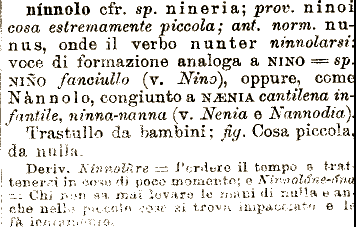 nínnolo cfr. sp. nineria; prov. ninoi
cosa estremamente piccola; ant. norm. nu-
nus, onde il verbo nunter ninnolarsi:
voce di formazione analoga a NINO = sp.
NIÑO fanciullo (v. Nino), oppure, come
Nànnolo, congiunto a NÆNIA cantilena in-
fantile, ninna-nanna (v. Nenia e Nannodia).
Trastullo da bambini; fig. Cosa piccola,
da nulla.
Deriv. Ninnolàre = Perdere il tempo e trat-
tenersi in cose di poco momento; e Ninnolóne-óna
= Chi non sa mai levare le mani di nulla e an-
che nelle piccole cose si trova impacciato e le
fa lentamente.